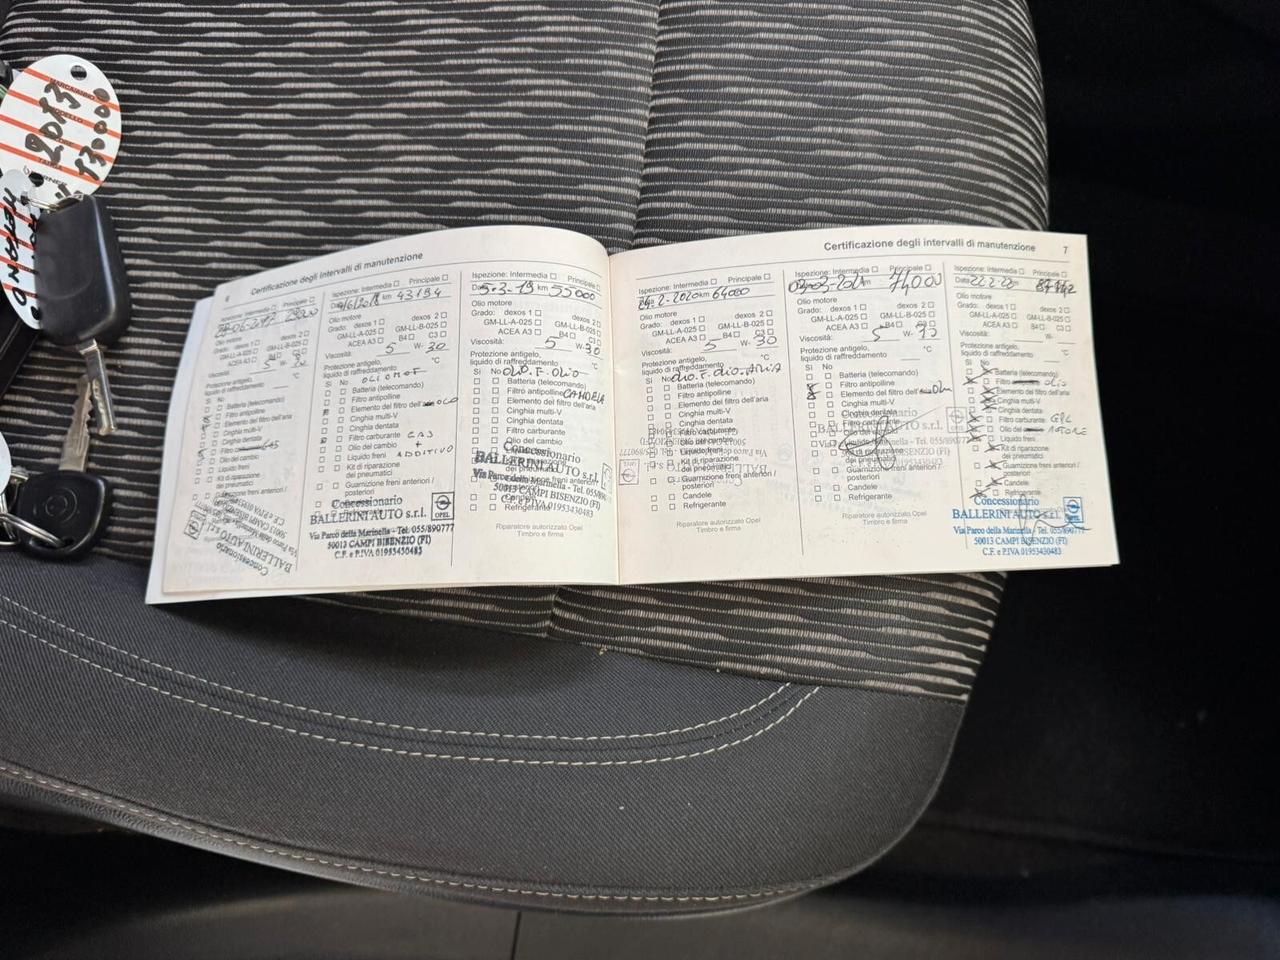 MARCA/ANNO
2013
130000
6
Certificazione degli intervalli di manutenzione
Ispezione: Intermedia Principale
Olio motore
Grado: dexos 1 dexos 2
GM-LL-A-025 GM-LL-B-025
ACEA A3 B4 C3
Viscosità: 5 W-30
Protezione antigelo,
liquido di raffreddamento °C
Sì No
Batteria (telecomando)
Filtro antipolline
Elemento del filtro dell'aria
Cinghia multi-V
Cinghia dentata
Filtro carburante GAS
Olio del cambio
Liquido freni
Kit di riparazione
dei pneumatici
Guarnizione freni anteriori /
Concessionario
BALLERINI AUTO s.r.l.
Ispezione: Intermedia Principale
Data km 43194
Olio motore
Grado: dexos 1 dexos 2
GM-LL-A-025 GM-LL-B-025
ACEA A3 B4 C3
Viscosità: 5 W-30
Protezione antigelo,
liquido di raffreddamento °C
Sì No OLIO MOT
Batteria (telecomando)
Filtro antipolline
Elemento del filtro dell'aria OLIO
Cinghia multi-V
Cinghia dentata
Filtro carburante GAS
Olio del cambio +
Liquido freni ADDITIVO
Kit di riparazione
dei pneumatici
Guarnizione freni anteriori /
posteriori
Concessionario
BALLERINI AUTO s.r.l. OPEL
Via Parco della Marinella - Tel. 055/890777
50013 CAMPI BISENZIO (FI)
C.F. e P.IVA 01953430483
Ispezione: Intermedia Principale
Data 5-3-19 km 55000
Olio motore
Grado: dexos 1 dexos 2
GM-LL-A-025 GM-LL-B-025
ACEA A3 B4 C3
Viscosità: 5 W-30
Protezione antigelo,
liquido di raffreddamento °C
Sì No OLIO.F.OLIO
Batteria (telecomando)
Filtro antipolline CANDELA
Elemento del filtro dell'aria
Cinghia multi-V
Cinghia dentata
Filtro carburante
Olio del cambio
Concessionario
BALLERINI AUTO s.r.l.
Via Parco della Marinella - Tel. 055/890
50013 CAMPI BISENZIO (FI)
C.F. e P.IVA 01953430483
Candele
Refrigerante
Riparatore autorizzato Opel
Timbro e firma
Certificazione degli intervalli di manutenzione 7
Ispezione: Intermedia Principale
Data 24-2-2020 km 64000
Olio motore
Grado: dexos 1 dexos 2
GM-LL-A-025 GM-LL-B-025
ACEA A3 B4 C3
Viscosità: 5 W-30
Protezione antigelo,
liquido di raffreddamento °C
Sì No OLIO.F.OLIO.ARIA
Batteria (telecomando)
Filtro antipolline
Elemento del filtro dell'aria
Cinghia multi-V
Cinghia dentata
Filtro carburante
Olio del cambio
Liquido freni
Kit di riparazione
dei pneumatici
Guarnizione freni anteriori /
posteriori
Candele
Refrigerante
Riparatore autorizzato Opel
Timbro e firma
Ispezione: Intermedia Principale
03-03-2021 km 74000
Olio motore
Grado: dexos 1 dexos 2
GM-LL-A-025 GM-LL-B-025
ACEA A3 B4 C3
Viscosità: 5 W-
Protezione antigelo,
liquido di raffreddamento °C
Sì No
Batteria (telecomando)
Filtro antipolline
Elemento del filtro dell'aria
Cinghia multi-V
Cinghia dentata
Concessionario
BALLERINI AUTO s.r.l.
Marinella - Tel. 055/890777
dei pneumatici
Guarnizione freni anteriori /
posteriori
Candele
Refrigerante
Riparatore autorizzato Opel
Timbro e firma
Ispezione: Intermedia Principale
Data 22.2.22 km
Olio motore
Grado: dexos 1 dexos 2
GM-LL-A-025 GM-LL-B-025
ACEA A3 B4 C3
Viscosità: W-
Protezione antigelo,
liquido di raffreddamento °C
Sì No
Batteria (telecomando)
Filtro OLIO
Elemento del filtro dell'aria
Cinghia multi-V
Cinghia dentata
Filtro carburante GPL
Olio del MOTORE
Liquido freni
Kit di riparazione
dei pneumatici
Guarnizione freni anteriori /
posteriori
Candele
Refrigerante
Concessionario
BALLERINI AUTO s.r.l. OPEL
Via Parco della Marinella - Tel. 055/890777
50013 CAMPI BISENZIO (FI)
C.F. e P.IVA 01953430483